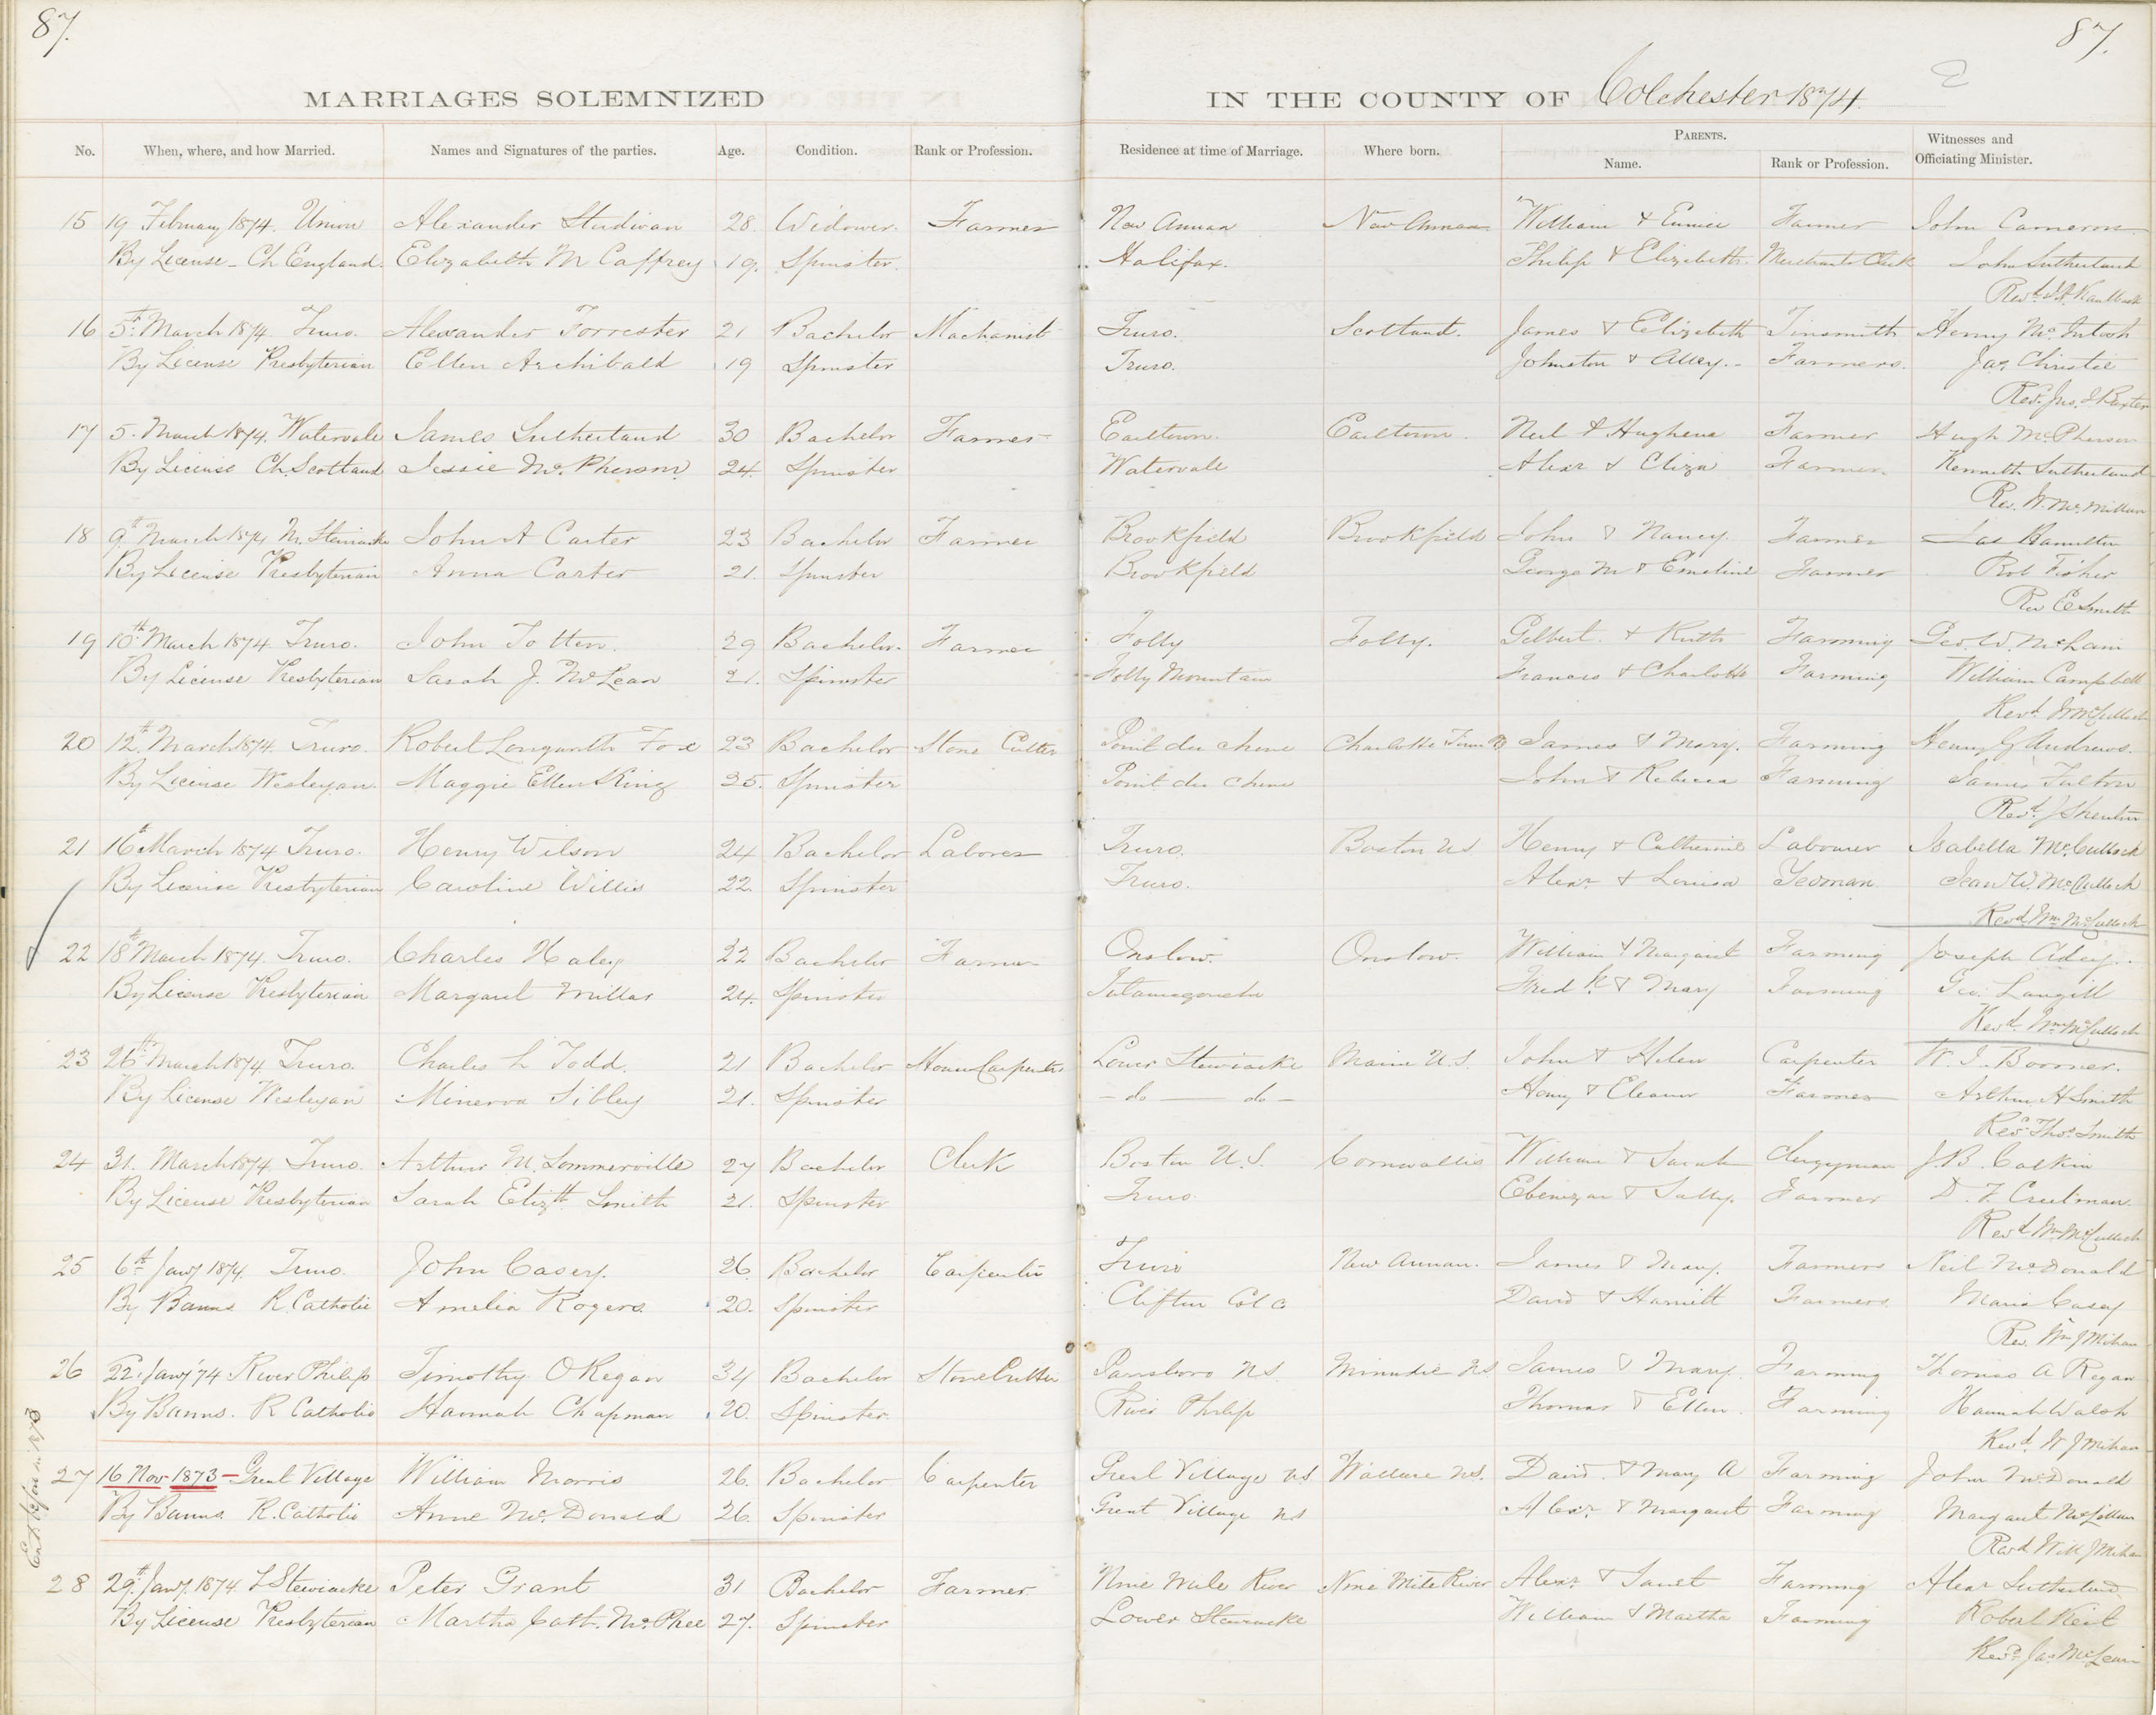 87.
87.
MARRIAGES SOLEMNIZED
IN THE COUNTY OF Colchester 1874.
No. When, where, and how Married. Names and Signatures of the parties. Age. Condition. Rank or Profession. Residence at time of Marriage. Where born. PARENTS. Name. Rank or Profession. Witnesses and Officiating Minister.
15 19 February 1874. Union Alexander Studivan 28. Widower. Farmer New Annan New Annan William & Eunice Farmer John Cameron
By License - Ch England. Elizabeth McCaffrey 19. Spinster. Halifax. Philip & Elizabeth. Merchants Clerk John Sutherland
Revd
16 5th March 1874 Truro. Alexander Forrester 21 Bachelor Machanist Truro. Scotland. James & Elizabeth Tinsmith Henry McIntosh
By License Presbyterian Ellen Archibald 19 Spinster Truro. Johnston & Alley. Farmers. Jas. Christie
Rev. Jno. I Baxter
17 5. March 1874. Watervale James Sutherland 30 Bachelor Farmer Earltown. Earltown. Neil & Hughena Farmer Hugh McPherson
By License Ch. Scotland Jessie McPherson. 24. Spinster Watervale Alexr & Eliza Farmer. Kenneth Sutherland
Rev. W. McMillan
18 9th March 1874 John A Carter 23 Bachelor Farmer Brookfield Brookfield John & Nancy Farmer Jas Hamilton
By License Presbyterian Anna Carter 21. Spinster Brookfield George M & Emeline Farmer Rob Fisher
Rev E Smith
19 10th March 1874 Truro. John Totten. 29 Bachelor. Farmer Folly Folly. Gilbert. & Ruth Farming Geo. W. McLain
By License Presbyterian Sarah J. McLean 21. Spinster Folly Mountain Francis & Charlotte Farming William Campbell
Revd WmcCulloch
20 12th March 1874. Truro. Robert Longworth Fox 23 Bachelor Stone Cutter Point du chene Charlotte Town James & Mary. Farming Henry G Andrews.
By License Wesleyan. Maggie Ellen King 25. Spinster Point du chene John & Rebecca Farming James Fulton
Revd. J Shenton
21 16th March 1874 Truro. Henry Wilson 24 Bachelor Laborer Truro. Boston US Henry & Catherine Labourer Isabella McCullock
By License Presbyterian Caroline Willis 22. Spinster Truro. Alexr & Louisa Yeoman. Jean W. McCulloch
Revd Wm McCulloch
22 18th March 1874. Truro. Charles Haley 22 Bachelor Farmer Onslow. Onslow. William & Margaret Farming Joseph
By License Presbyterian Margaret Millar 24. Spinster Tatamagouche Fred K & Mary Farming Geo. Langill
Revd. Wm McCulloch
23 26th March 1874. Truro. Charles L Todd. 21 Bachelor House Carpenter Lower Stewiacke Maine U.S. John & Helen Carpenter W. I. Boomer.
By License Wesleyan Minerva Sibley 21. Spinster - do - do - Henry & Eleanor Farmer Arthur H Smith
Rev. Thos. Smith
24 31. March 1874 Truro. Arthur M. Sommerville 27 Bachelor Clerk Boston U.S. Cornwallis William & Sarah Clergyman J.B. Calkin
By License Presbyterian Sarah Elizth Smith 21. Spinster Truro. Ebenezar & Sally. Farmer D. F. Creelman.
Revd Wm McCulloch
25 6th Jany 1874. Truro. John Casey. 26 Bachelor Carpenter Truro New Annan. James & Mary. Farmers Neil McDonald
By Banns R. Catholic Amelia Rogers. 20. Spinster Clifton Col Co David & Harriett Farmers. Maria Casey
Rev. Wm J Mihan
26 22. Jany '74 River Philip Timothy O Regan 34 Bachelor Stone Cutter Parrsboro NS. Minudie NS James & Mary. Farming Thomas A Regan
By Banns. R Catholic Hannah Chapman 20. Spinster. River Philip Thomas & Ellen. Farming Hannah Walsh
Revd. W J Mihan
27 16 Nov 1873 - Great Village William Morris 26. Bachelor Carpenter Great Village NS Wallace NS. David. & Mary A Farming John McDonald
By Banns. R. Catholic Anne McDonald 26. Spinster Great Village NS Alexr. & Margaret Farming Margaret
Revd Will J Mihan
28 29th Jany. 1874. L Stewiacke Peter Grant 31 Bachelor Farmer Nine Mile River Nine Mile River Alexr. & Janet Farming Alexr Sutherland.
By License Presbyterian Martha Cath. McPhee 27. Spinster Lower Stewiacke William & Martha Farming Robert
Revd. Jas. McLean